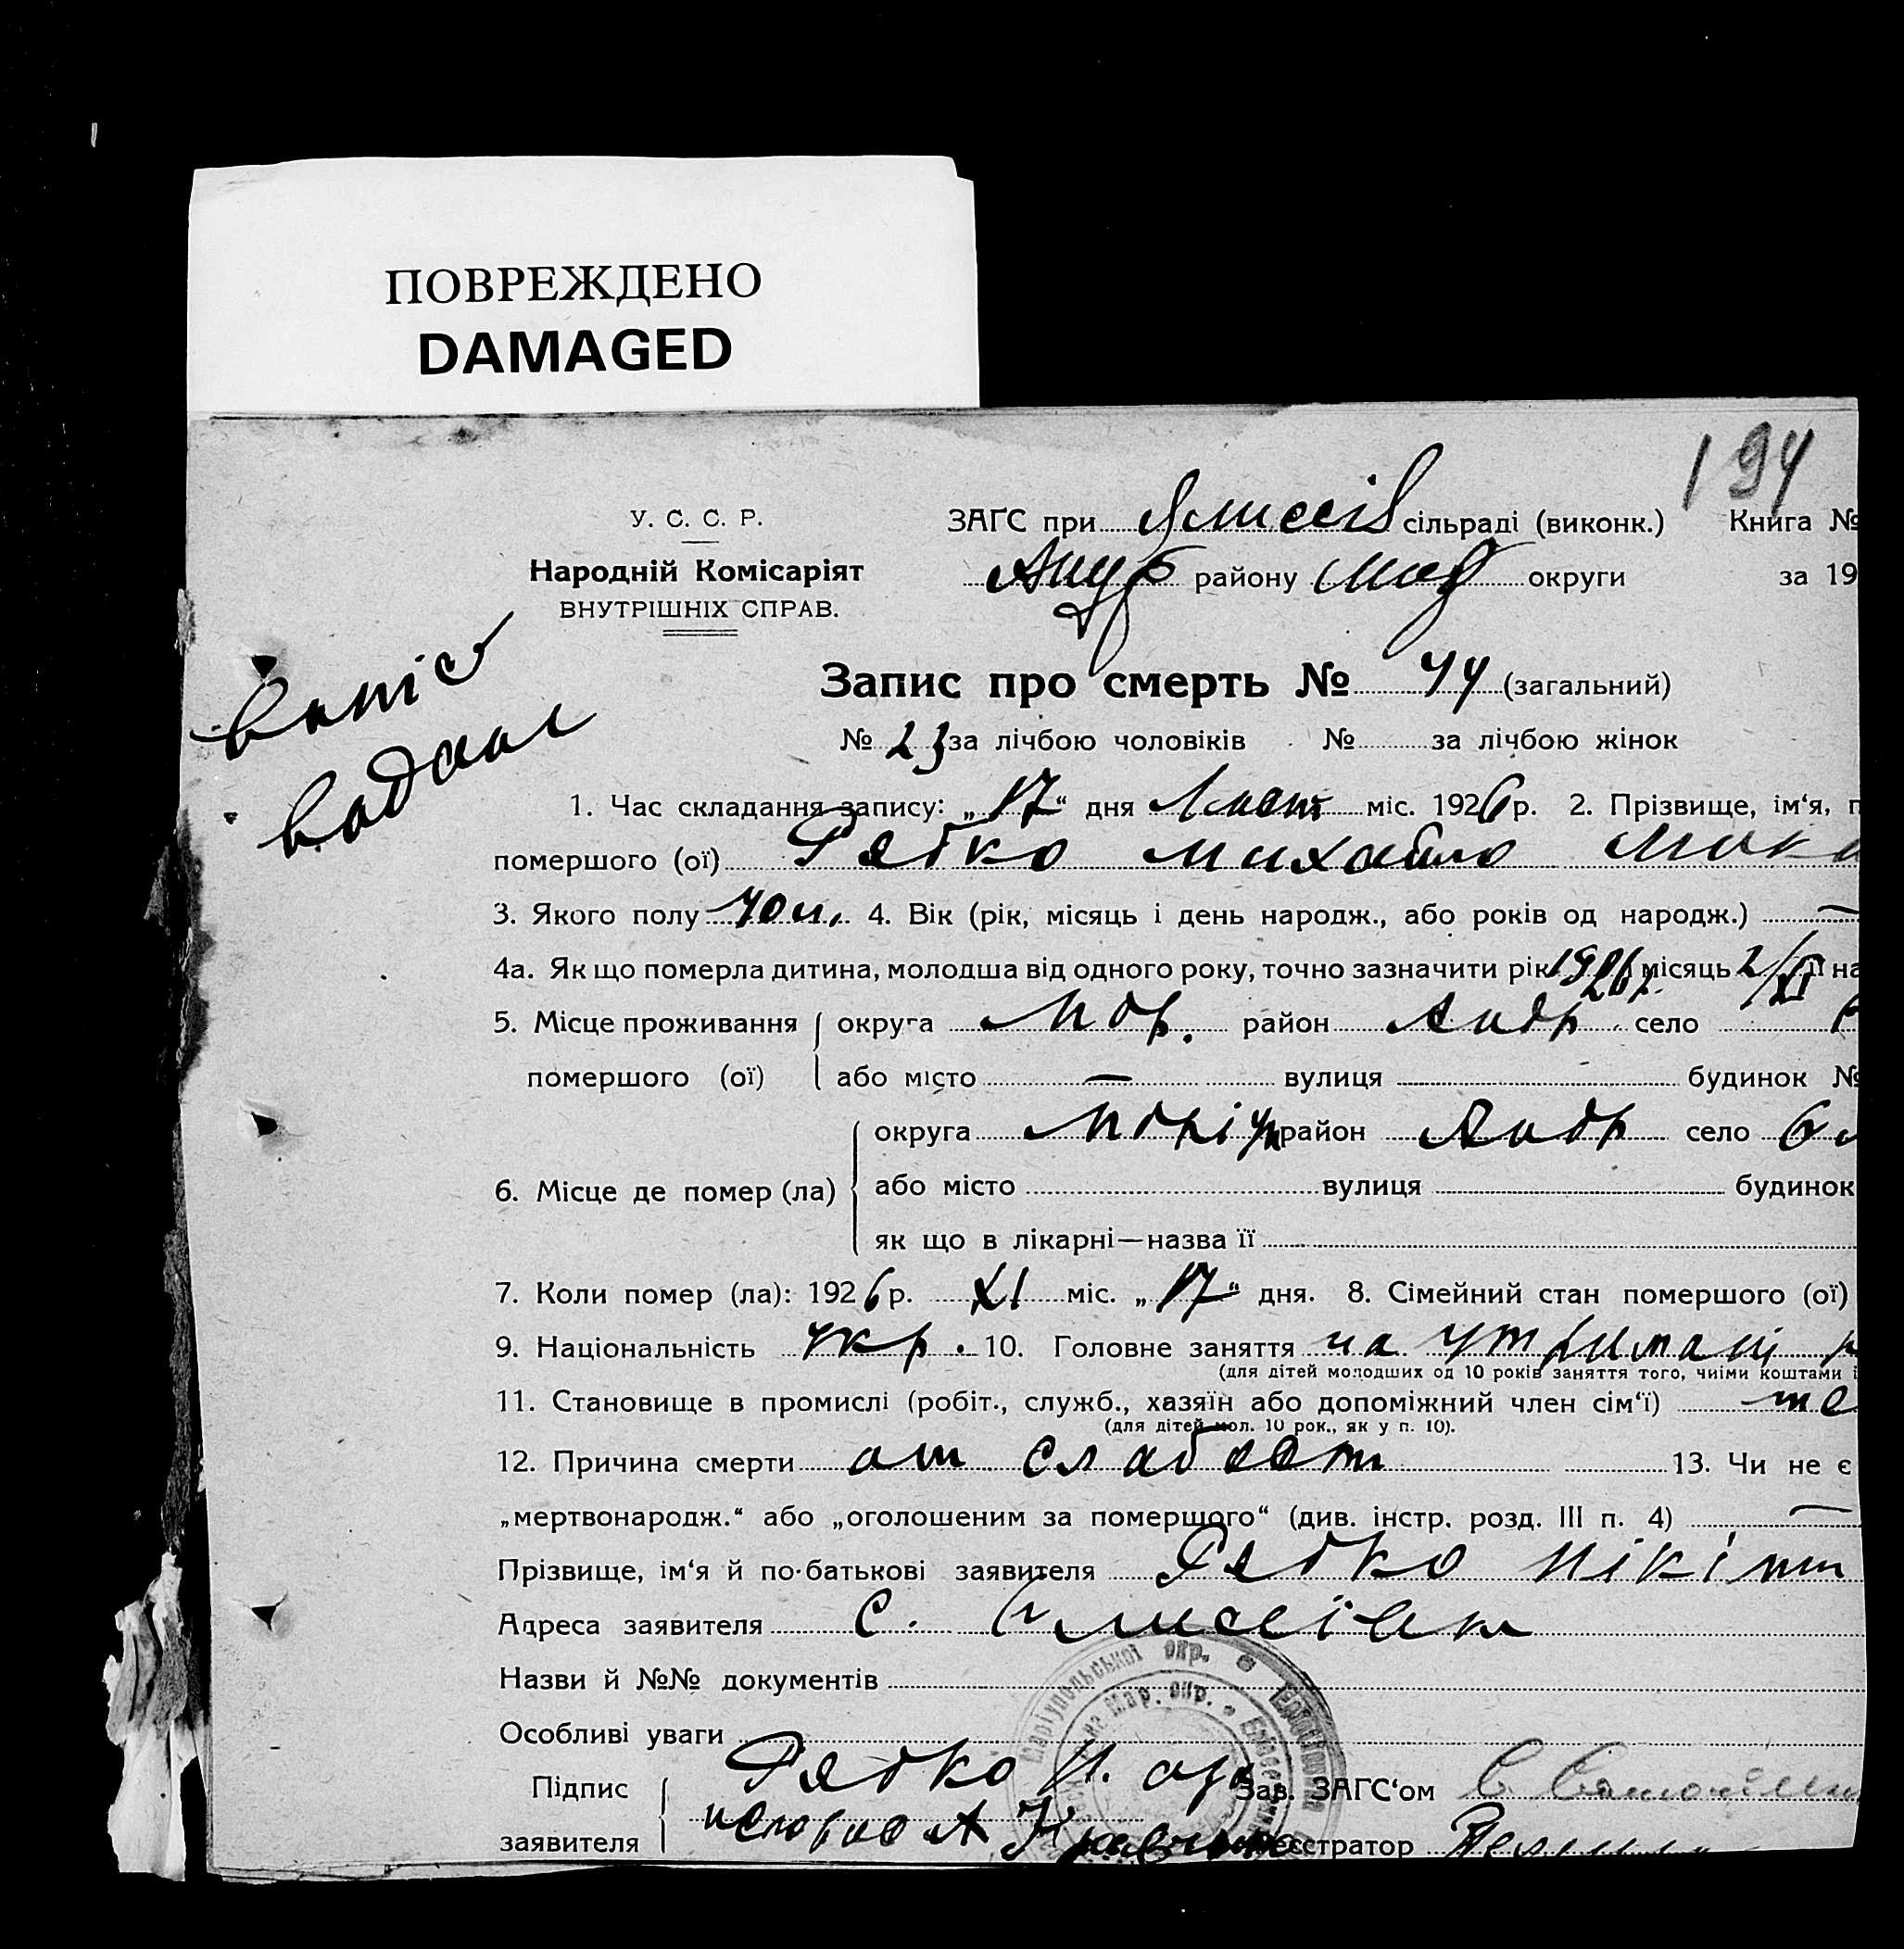 ПОВРЕЖДЕНО
DAMAGED
194
У. С. С. Р.
Народній Комісаріят
ВНУТРІШНІХ СПРАВ.
ЗАГС при сільраді (виконк.) Книга №
району округи за 19
Запис про смерть № 44 (загальний)
№ 23 за лічбою чоловіків № за лічбою жінок
1. Час складання запису: „17“ дня Лист міс. 1926 р. 2. Прізвище, ім‘я, п
помершого (ої) Рябко Михайло Мака
3. Якого полу чол. 4. Вік (рік, місяць і день народж., або років од народж.) —
4а. Як що померла дитина, молодша від одного року, точно зазначити рік 1926 р. місяць 2/XI на
5. Місце проживання округа Мар. район Андр. село
помершого (ої) або місто — вулиця будинок №
округа Маріуп район Андр село
6. Місце де помер (ла) або місто вулиця будинок
як що в лікарні—назва її
7. Коли помер (ла): 1926 р. XI міс. „17“ дня. 8. Сімейний стан помершого (ої)
9. Національність укр. 10. Головне заняття на утриманні
(для дітей молодших од 10 років заняття того, чиїми коштами і
11. Становище в промислі (робіт., служб., хазяїн або допоміжний член сім‘ї) те
(для дітей мол. 10 рок., як у п. 10).
12. Причина смерти от слабости 13. Чи не є
„мертвонародж.“ або „оголошеним за помершого“ (див. інстр. розд. III п. 4) —
Прізвище, ім‘я й по-батькові заявителя Рябко Нікіт
Адреса заявителя с.
Назви й №№ документів
Особливі уваги
Маріупольської окр.
Мар. окр.
Підпис Рябко Н. Зав. ЗАГС‘ом
заявителя А Реєстратор